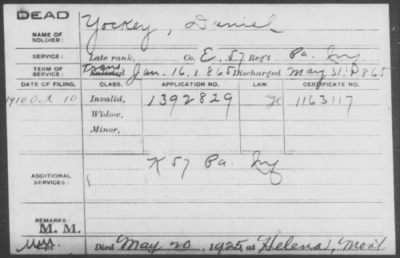 DEAD
NAME OF SOLDIER: Yockey, Daniel
SERVICE: Late rank, Co. E, 57 Reg't Pa. Inf
TERM OF SERVICE: Enlisted Tran Jan. 16, 1865 Discharged May 31, 1865
DATE OF FILING. CLASS. APPLICATION NO. LAW. CERTIFICATE NO.
1910 Oct. 10 Invalid, 1392829 1163117
Widow,
Minor,
ADDITIONAL SERVICES: K 57 Pa. Inf
REMARKS:
M. M.
Died May 20, 1925, at Helena, Mont